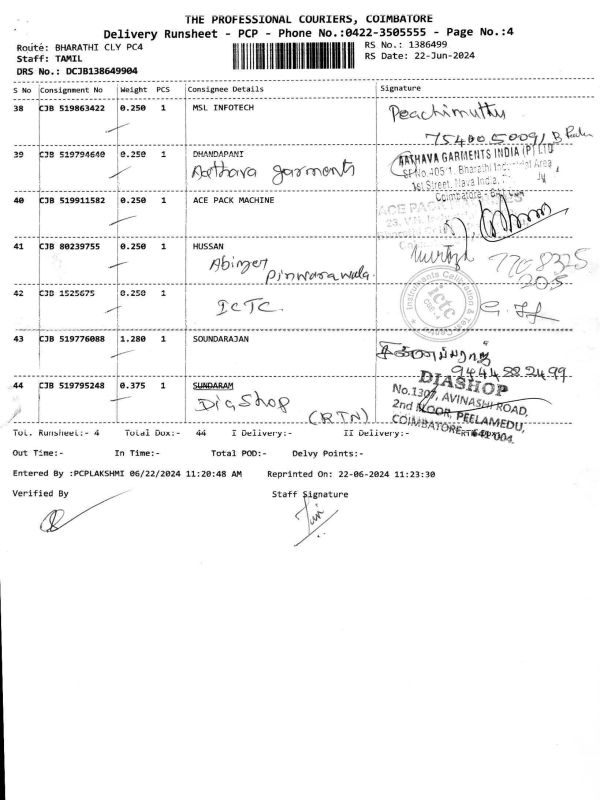 THE PROFESSIONAL COURIERS, COIMBATORE
Delivery Runsheet - PCP - Phone No.:0422-3505555 - Page No.:4
Route: BHARATHI CLY PC4
RS No.: 1386499
Staff: TAMIL
RS Date: 22-Jun-2024
DRS No.: DCJB138649904
S No Consignment No Weight PCS Consignee Details Signature
38 CJB 519863422 0.250 1 MSL INFOTECH Peachimuthu
39 CJB 519794640 0.250 1 DHANDAPANI
Aathava garments
AATHAVA GARMENTS INDIA (P) LTD
SF No.405/1, Bharathi Industrial Area
1st Street, Nava India,
Coimbatore
40 CJB 519911582 0.250 1 ACE PACK MACHINE
41 CJB 80239755 0.250 1 HUSSAN
Abizer
Murtaza
7708325
205
42 CJB 1525675 0.250 1
ICTC.
Instruments Calibration & Test
ictc
43 CJB 519776088 1.280 1 SOUNDARAJAN
9444282499
44 CJB 519795248 0.375 1 SUNDARAM
DiaShop
(RTN)
DIASHOP
No.1307, AVINASHI ROAD,
2nd FLOOR, PEELAMEDU,
COIMBATORE - 641 004.
Tot. Runsheet:- 4 Total Dox:- 44 I Delivery:- II Delivery:- RTN Dox:-
Out Time:- In Time:- Total POD:- Delvy Points:-
Entered By :PCPLAKSHMI 06/22/2024 11:20:48 AM Reprinted On: 22-06-2024 11:23:30
Verified By Staff Signature